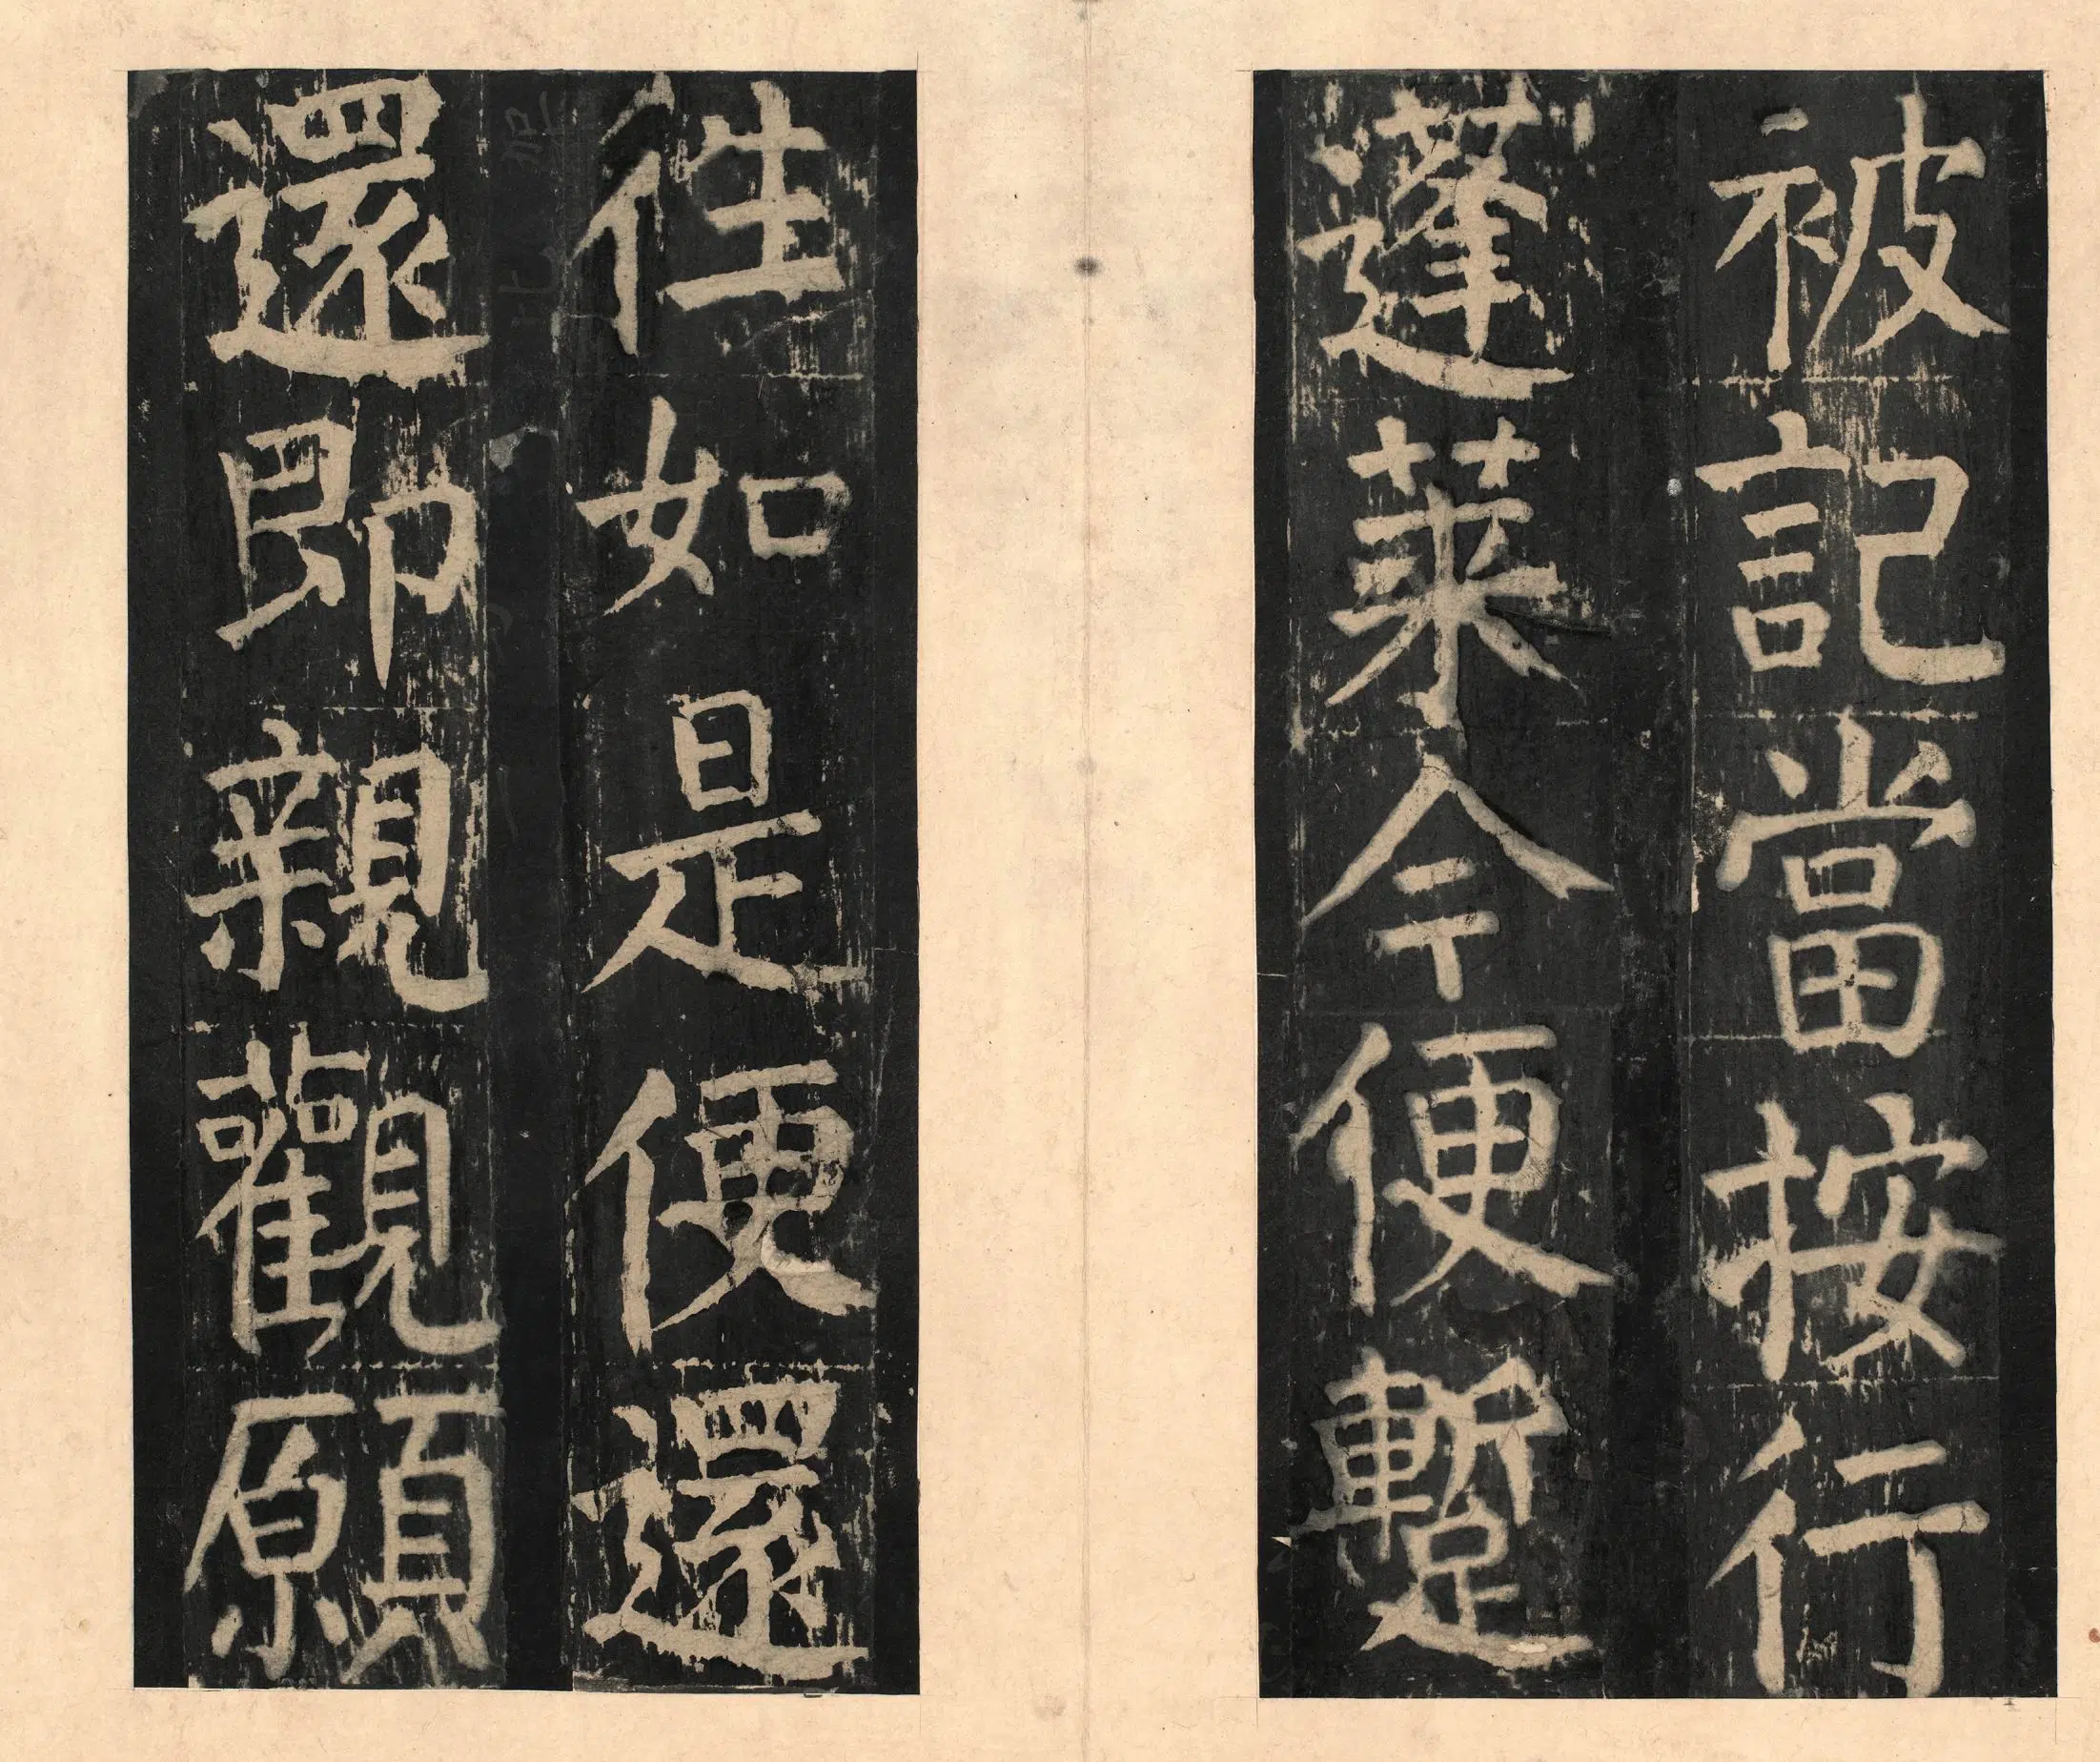 被記當按行
蓬萊今便蹔
徃如是便還
還即親觀願